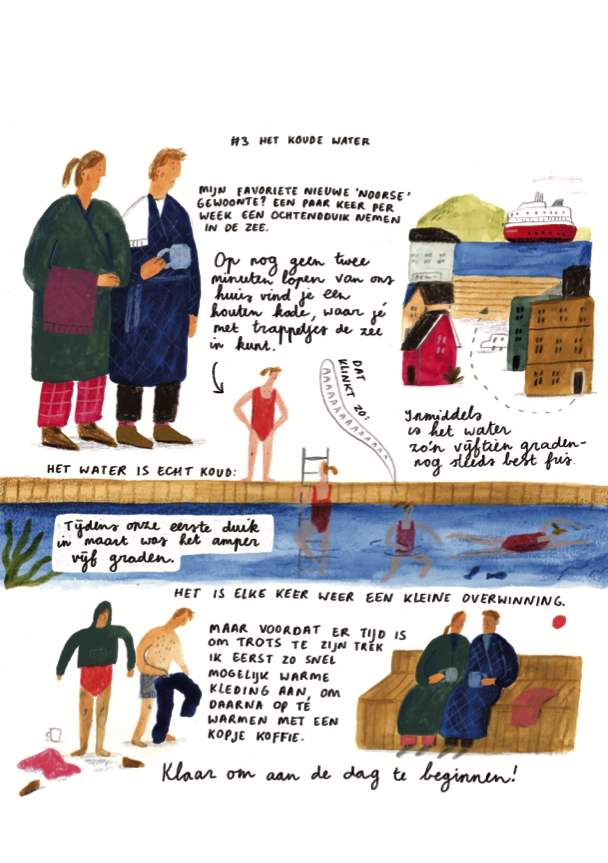 #3 HET KOUDE WATER
MIJN FAVORIETE NIEUWE 'NOORSE'
GEWOONTE? EEN PAAR KEER PER
WEEK EEN OCHTENDDUIK NEMEN
IN DE ZEE.
Op nog geen twee
minuten lopen van ons
huis vind je een
houten kade, waar je
met trappetjes de zee
in kunt.
DAT
KLINKT ZO:
AAAAAAAAAAAAAAAA
Inmiddels
is het water
zo'n vijftien graden-
nog steeds best fris.
HET WATER IS ECHT KOUD:
Tijdens onze eerste duik
in maart was het amper
vijf graden.
HET IS ELKE KEER WEER EEN KLEINE OVERWINNING.
MAAR VOORDAT ER TIJD IS
OM TROTS TE ZIJN TREK
IK EERST ZO SNEL
MOGELIJK WARME
KLEDING AAN, OM
DAARNA OP TE
WARMEN MET EEN
KOPJE KOFFIE.
Klaar om aan de dag te beginnen!